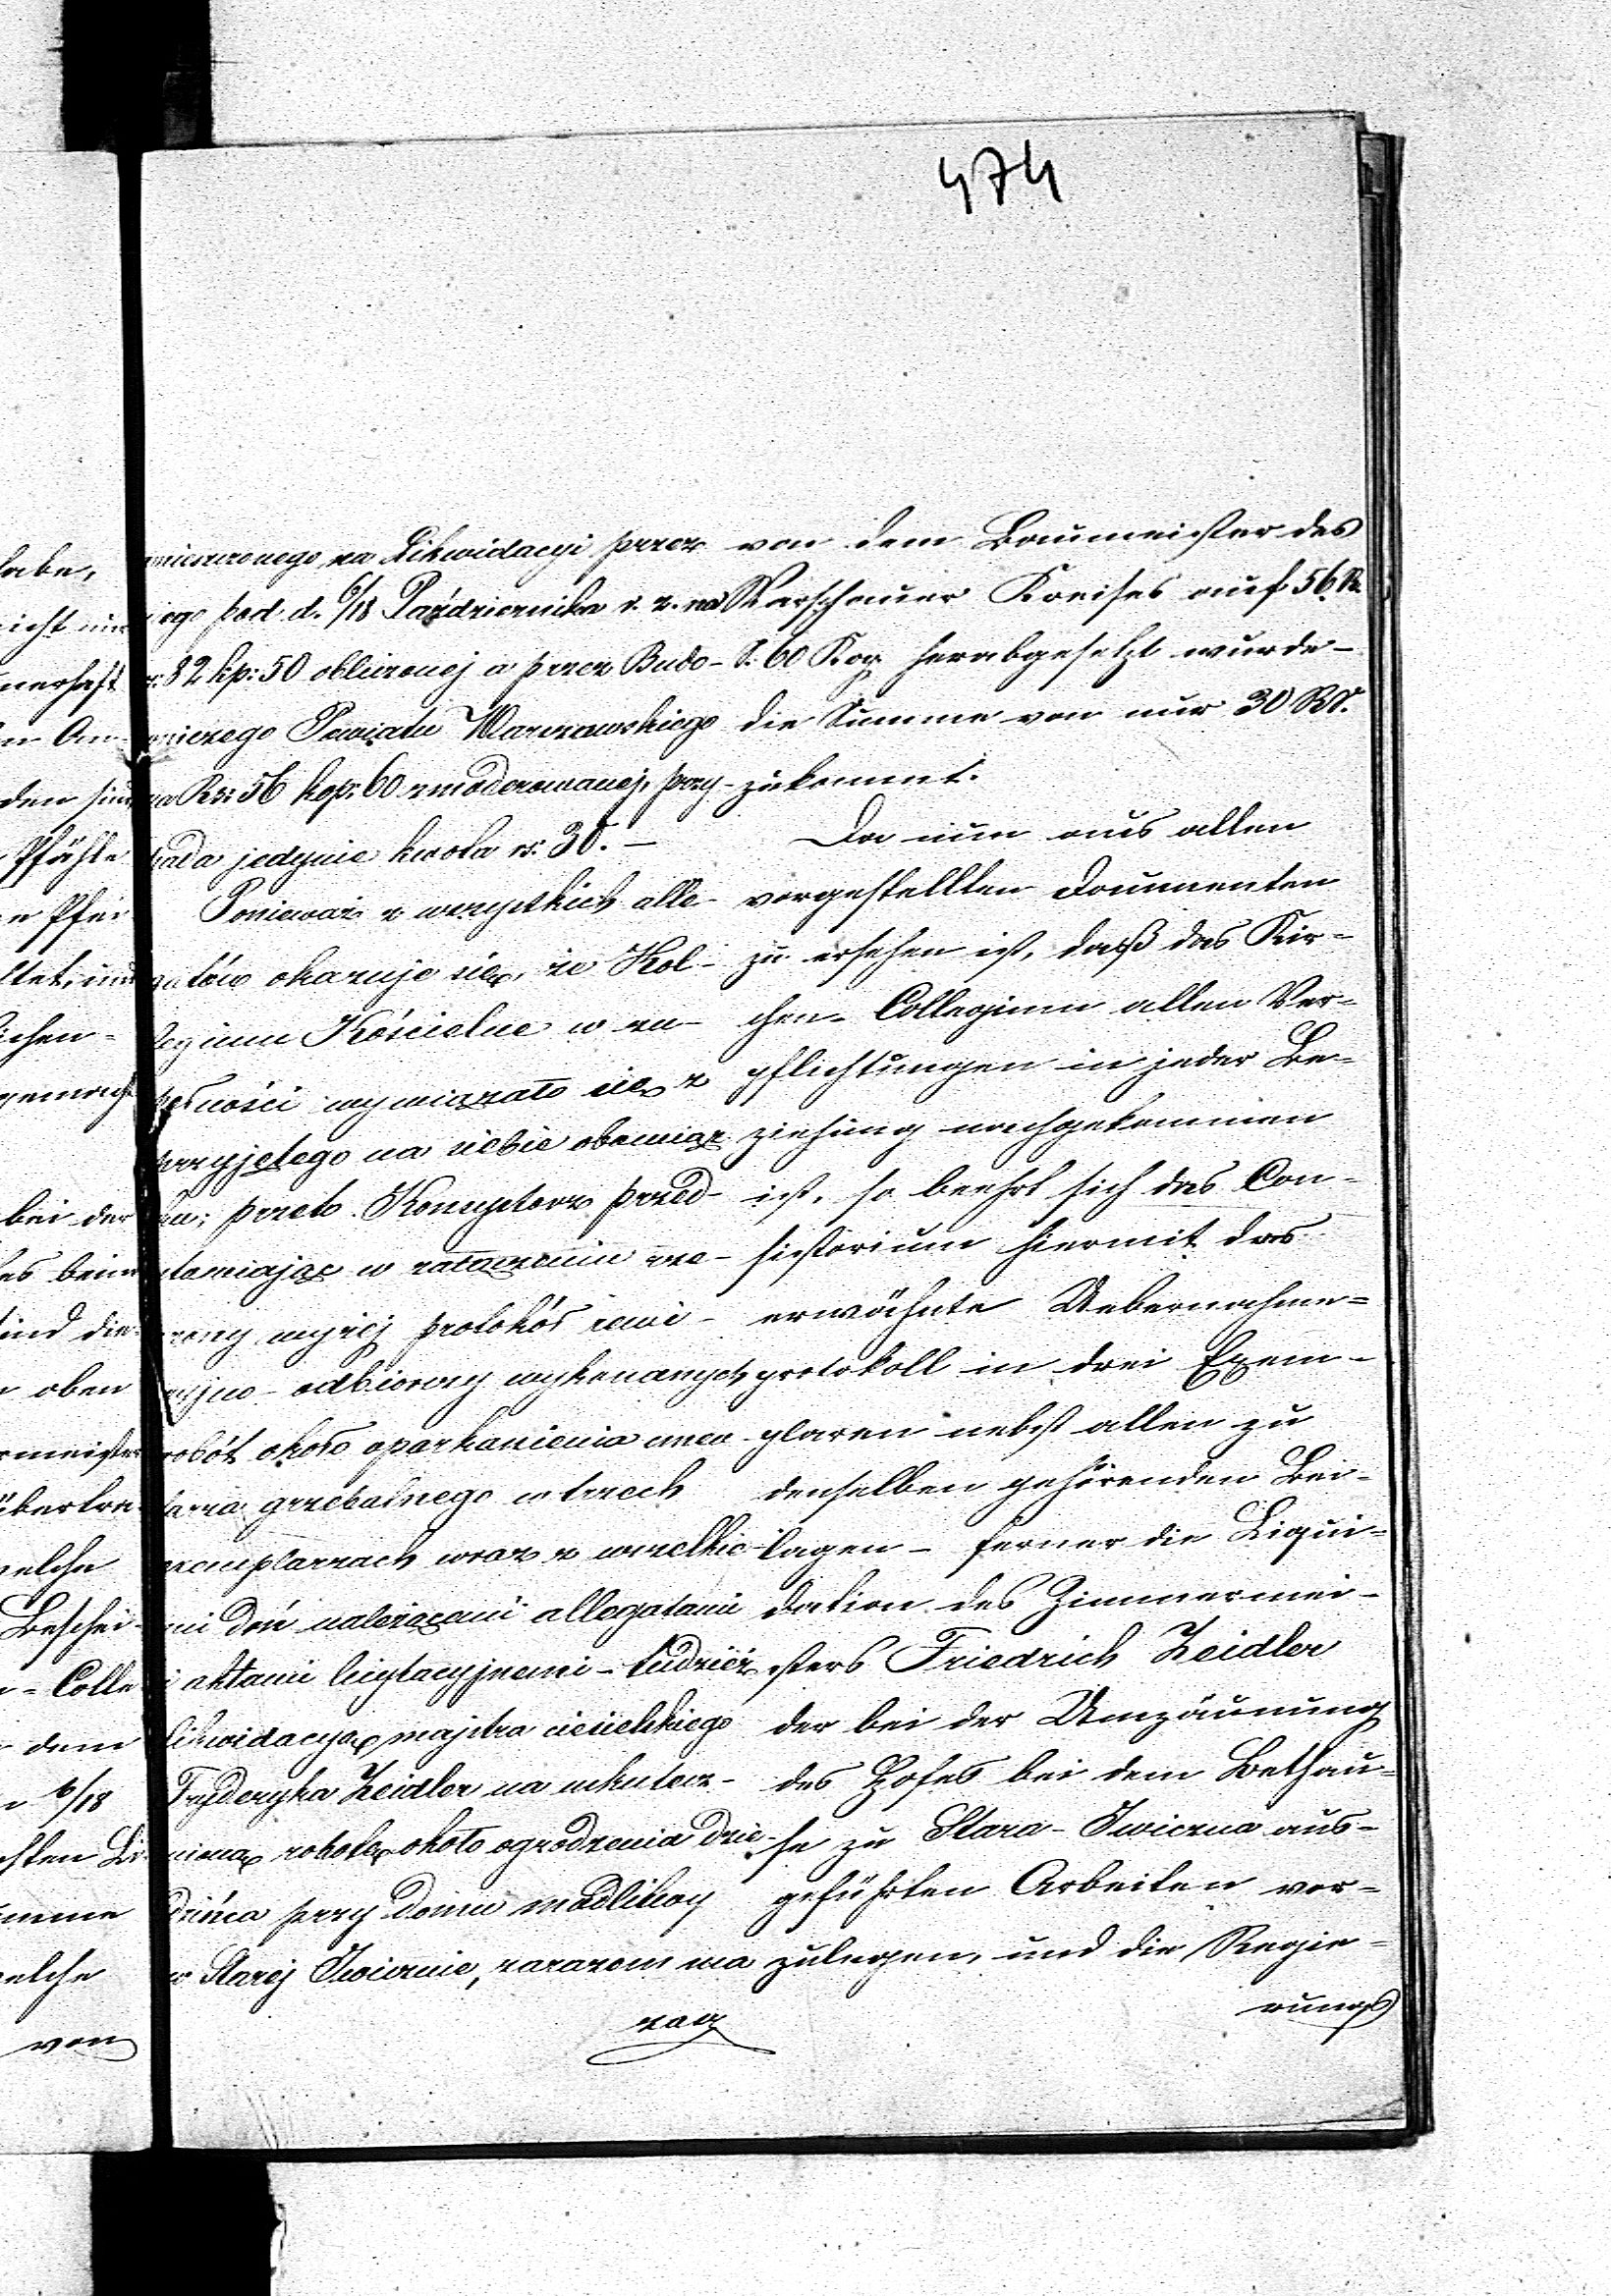 474
mieszczonego, na Likwidacyi przez
iego pod d. 6/18 Października r. z. na
rs. 82 kp: 50 obliczonej a przez Budo-
wniczego Powiatu Warszawskiego
na Rs: 56 kop: 60 zmoderowanej, przy-
pada jedynie kwota rs. 30. –
Ponieważ z wszystkich alle-
gatów okazuje się, że Kol-
legium Kościelne w zu-
pełności wywiązało się z
przyjętego na siebie obowiąz
ku; przeto Konsystorz przed-
stawiając w załączeniu rze-
czony wyżej protokół rewi-
zyjno-odbiorczy wykonanych
robót około oparkanienia cmen-
tarza grzebalnego w trzech
exemplarzach wraz z wszelkie-
mi doń należącemi allegatami
i aktami licytacyjnemi – tudzież
likwidacyą majstra ciesielskiego
Fryderyka Zeidler na uskutecz-
nioną robotę około ogrodzenia dzie-
dzińca przy domu modlitwy
w Starej Iwicznie, zarazem ma
zaszczyt
von dem Baumeister des
Warschauer Kreises auf 56 R.
S. 60 Kop. herabgesetzt wurde –
die Summe von nur 30 RS.
zukommt.
Da nun aus allen
vorgestellten Documenten
zu ersehen ist, daß das Kir-
chen-Collegium allen Ver-
pflichtungen in jeder Be-
ziehung nachgekommen
ist, so beehrt sich das Con-
sistorium hiermit das
erwähnte Uebernahme-
protokoll in drei Exem-
plaren nebst allen zu
denselben gehörenden Bei-
lagen – ferner die Liqui-
dation des Zimmermei-
sters Friedrich Zeidler
der bei der Umzäunung
des Hofes bei dem Bethau-
se zu Stara-Iwiczna aus-
geführten Arbeiten vor-
zulegen, und die Regie-
rungs